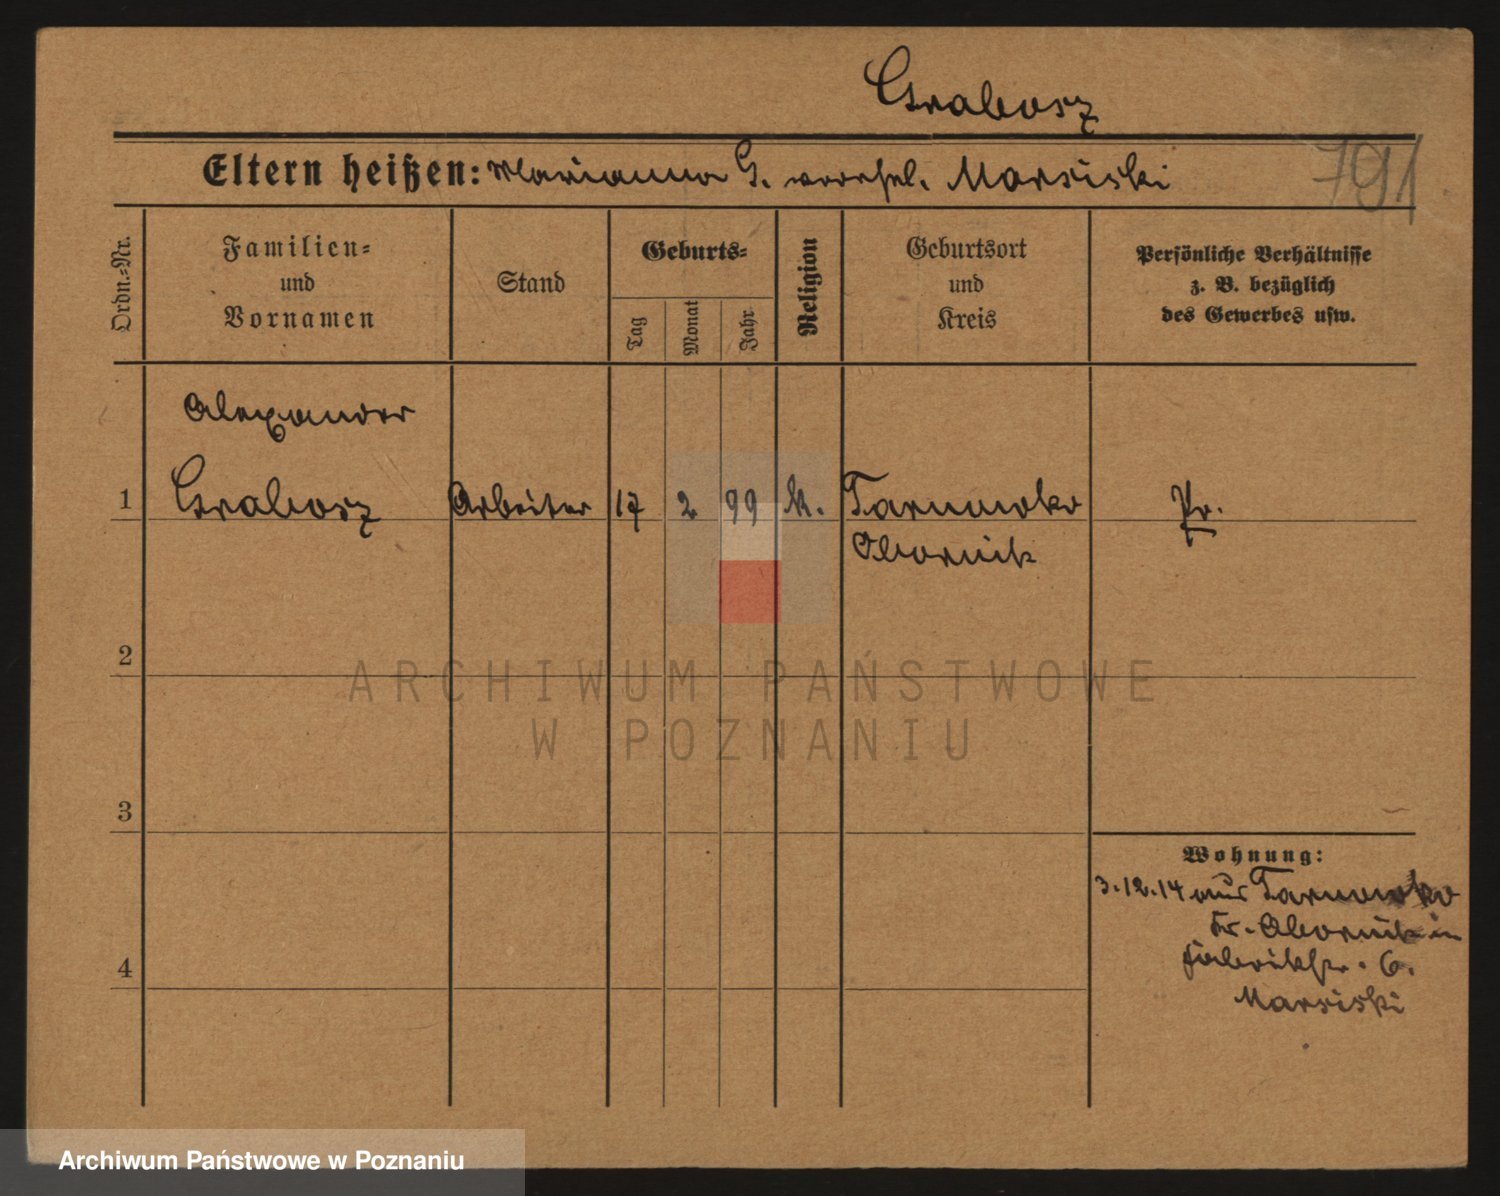 Grabosz
Eltern heißen: Marianna G. verehel. Marsiski
791
Ordn.-Nr.
Familien-
und
Vornamen
Stand
Geburts-
Tag
Monat
Jahr
Religion
Geburtsort
und
Kreis
Persönliche Verhältnisse
z. B. bezüglich
des Gewerbes usw.
Alexander
1 Grabosz Arbeiter 17 2 99 k. Tarnowko Pr.
Obornik
2
3
4
Wohnung:
3.12.14 aus Tarnowko
Kr. Obornik in
Fabrikstr. 6.
Marsiski
ARCHIWUM PAŃSTWOWE
W POZNANIU
Archiwum Państwowe w Poznaniu